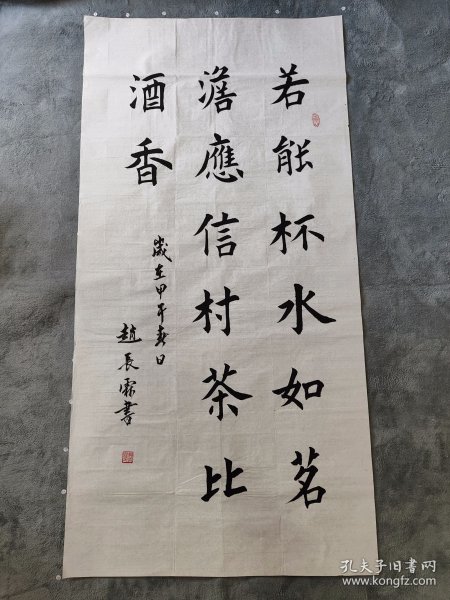 若能杯水如茗
澹應信村茶比
酒香
歲在甲午春日
趙長霖書
孔夫子旧书网
www.kongfz.com